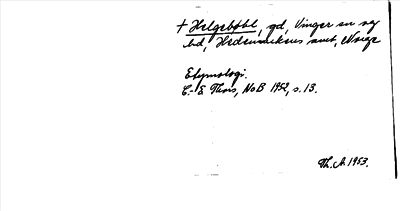 + Helgebøbl, gd, Vinger sn og
hd, Hedemarkens amt, Norge
Etymologi.
C.-E. Thors, NoB 1952, s. 13.
Th. A. 1953.